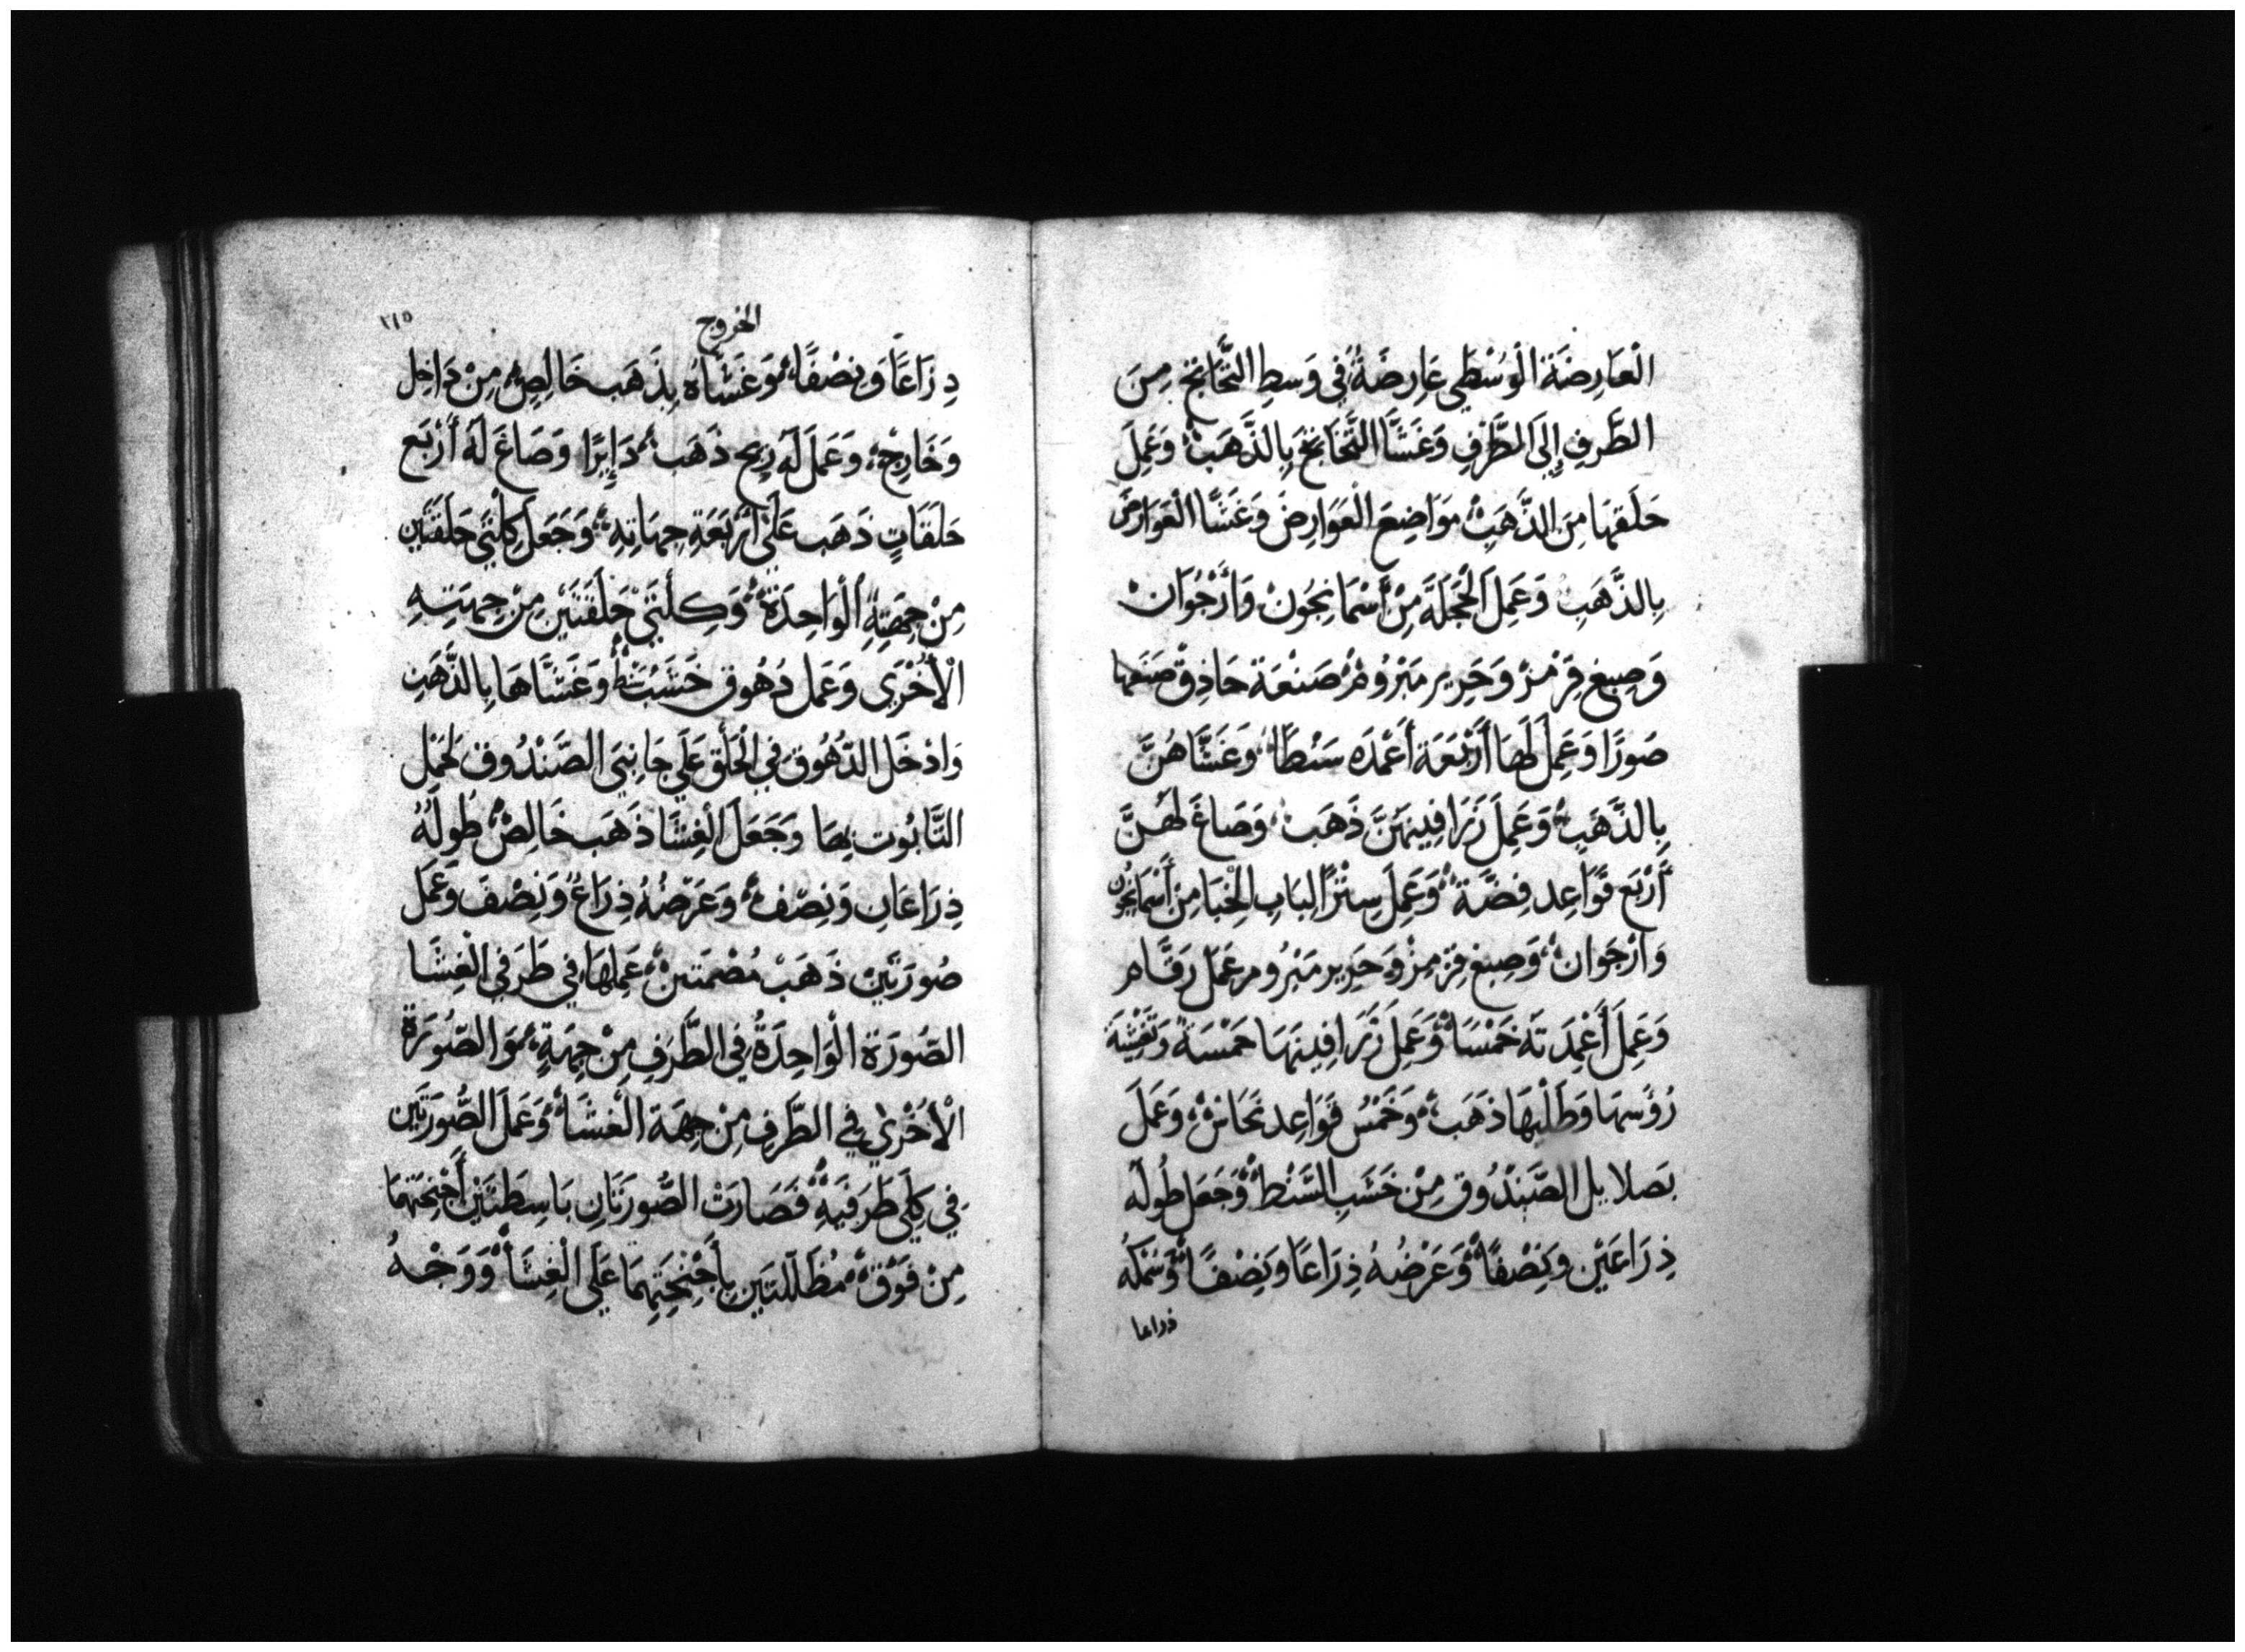 الْعَارِضَةَ الْوُسْطَى عَارِضَةً فِي وَسَطِ التَّخَاتِجِ مِنَ
الطَّرَفِ إِلَى الطَّرَفِ وَغَشَّا التَّخَاتِجَ بِالذَّهَبْ وَعَمِلَ
حَلَقهَا مِنَ الذَّهَبْ مَوَاضِعَ الْعَوَارِضَ وَغَشَّا الْعَوَارِضَ
بِالذَّهَبِ وَعَمِلَ الْحَجَلَةَ مِنْ أَسْمَانِجُونْ وَأَرْجُوَانْ
وَصِبغ قِرْمزْ وَحَرِير مَبْرُومْ صَنْعَة حَاذِقْ صَنَعَهَا
صَورًا وَعَمِلَ لَهَا أَرْبَعَة أَعْمدَه سَنْطًا وَغَشَّاهُنَّ
بِالذَّهَبِ وَعَمِلَ زَرَافِينهَنَّ ذَهَب وَصَاغَ لَهُنَّ
أَرْبَع قَوَاعِد فِضَّة وَعَمِلَ سِتْرًا لِبَابِ الْخِبَا مِنْ أَسْمَانْجُون
وَأَرْجَوَانْ وَصِبغ قِرْمِزْ وَحَرِير مَبْرُوم عَمَل رَقَّام
وَعَمِلَ أَعْمِدَتَهُ خَمْسًا وَعَمِلَ زَرَافِينَهَا خَمْسَةْ وَتَغْشِيَة
رُؤُسهَا وَطَلْيهَا ذَهَب وَخَمْسُ قَوَاعِد نحَاسْ وَعَمَلَ
بَصلَايل الصَّنْدُوق مِنْ خَشَبِ السَّنْط وَجَعَلَ طُولَه
ذِرَاعَيْن وَنِصْفًا وَعَرْضُهُ ذِرَاعًا وَنِصْفًا وَسَمْكُهُ
ذراعا
الخروج
٢١٥
ذِرَاعًا وَنِصْفًا وَغَشَّاهُ بِذَهَب خَالِصٍ مِنْ دَاخِل
وَخَارِجْ وَعَمَلَ لَه زِيج ذَهَب دَايِرًا وَصَاغَ لَهُ أَرْبَع
حَلَقَاتٍ ذَهَب عَلَى أَرْبَعَةِ جِهَاتِهِ وَجَعَلَ كِلْتَيْ حَلَقَتَيْن
مِنْ جِهَتِهِ الْوَاحِدَةْ وَكِلْتَيْ حَلَقَتَيْنِ مِنْ جِهَتِهِ
الْأُخْرَى وَعَمَل دُهُوق خَشَبْ سَنْطْ وَغَشَّاهَا بِالذَّهَبِ
وَادْخَلَ الدُّهُوقَ فِي الْحَلَقِ عَلَى جَانِبَيِ الصَّنْدُوق لِحَمْل
التَّابُوت بِهَا وَجَعَلَ الْغِشَا ذَهَب خَالِصْ طُولَهُ
ذِرَاعَان وَنِصْف وَعَرْضُهُ ذِرَاعٌ وَنِصْفَ وَعَمَل
صُورَتَيْنْ ذَهَبْ مُصْمَتَين عَمِلهَا فِي طَرَفي الْغِشَا
الصُّورَة الْوَاحِدَةُ فِي الطَّرَفِ مِنْ جِهَةٍ وَالصُّورَة
الْأُخْرَى فِي الطَّرَفِ مِنْ جِهَة الْغشَا وَعَمَلَ الصُّورَتَين
فِي كِلَى طَرَفَيْهِ فَصَارَتْ الصُّورَتَانِ بَاسِطَتَيْن أَجْنِحَتَهُمَا
مِنْ فَوْق مُظَلِّلَتَين بِأَجْنِحَتِهِمَا عَلَى الْغِشَا وَوَجْهُ